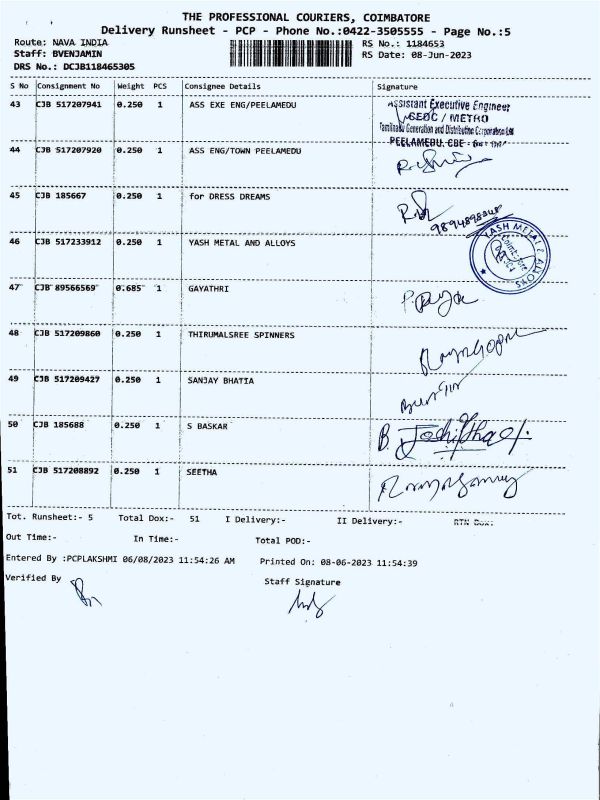 THE PROFESSIONAL COURIERS, COIMBATORE
Delivery Runsheet - PCP - Phone No.:0422-3505555 - Page No.:5
Route: NAVA INDIA
RS No.: 1184653
Staff: BVENJAMIN
RS Date: 08-Jun-2023
DRS No.: DCJB118465305
S No Consignment No Weight PCS Consignee Details Signature
43 CJB 517207941 0.250 1 ASS EXE ENG/PEELAMEDU
Assistant Executive Engineer
METRO
Tamilnadu Generation and Distribution Corporation Ltd
PEELAMEDU, CBE -
44 CJB 517207920 0.250 1 ASS ENG/TOWN PEELAMEDU
45 CJB 185667 0.250 1 for DRESS DREAMS
46 CJB 517233912 0.250 1 YASH METAL AND ALLOYS
YASH METAL & ALLOYS
47 CJB 89566569 0.685 1 GAYATHRI
48 CJB 517209860 0.250 1 THIRUMALSREE SPINNERS
49 CJB 517209427 0.250 1 SANJAY BHATIA
50 CJB 185688 0.250 1 S BASKAR
51 CJB 517208892 0.250 1 SEETHA
Tot. Runsheet:- 5 Total Dox:- 51 I Delivery:- II Delivery:- RTN Dox:
Out Time:- In Time:- Total POD:-
Entered By :PCPLAKSHMI 06/08/2023 11:54:26 AM Printed On: 08-06-2023 11:54:39
Verified By Staff Signature